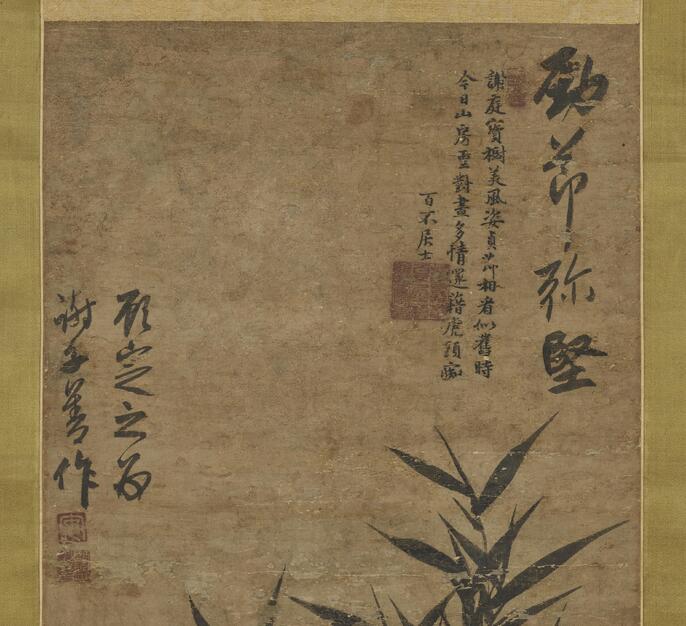 勁節弥堅
謝庭寶樹美風姿貞節相看似舊時
今日山房重對畫多情還藉虎頭痴
百不居士
顧定之為
謝子善作